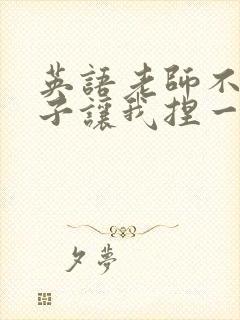 英語老師不
子讓我捏一
夕夢